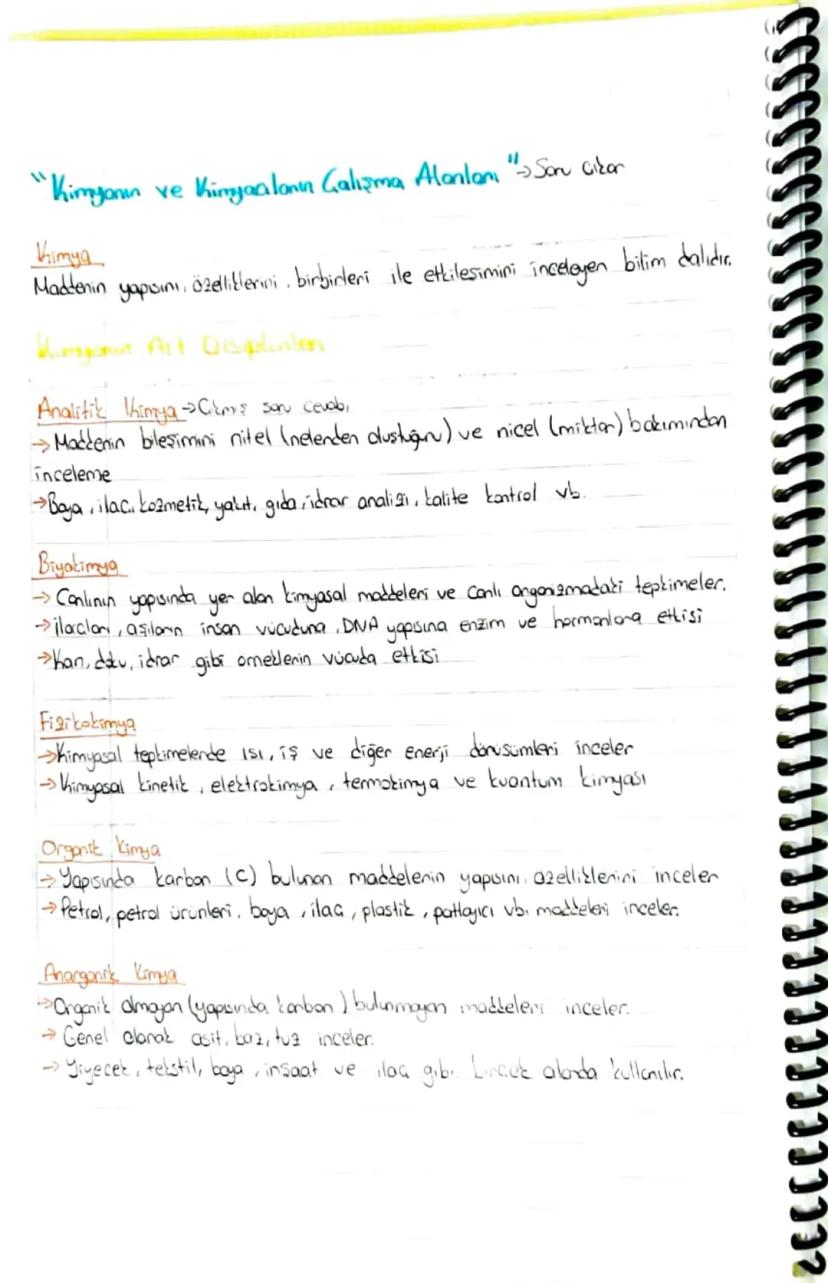 "Kimyanın ve Kimyacıların Çalışma Alanları" → Soru Çıkar
Kimya
Maddenin yapısını, özelliklerini, birbirleri ile etkileşimini inceleyen bilim dalıdır.
Kimyanın Alt Disiplinleri
Analitik Kimya → Çıkmış soru cevabı
→ Maddenin bileşimini nitel (nelerden oluştuğunu) ve nicel (miktar) bakımından
inceleme
→ Boya, ilaç, kozmetik, yakıt, gıda, idrar analizi, kalite kontrol vb.
Biyokimya
→ Canlının yapısında yer alan kimyasal maddeleri ve canlı organizmadaki tepkimeler.
→ ilaçları, aşıların insan vücuduna, DNA yapısına enzim ve hormonlara etkisi
→ Kan, doku, idrar gibi örneklerin vücuda etkisi
Fizikokimya
→ Kimyasal tepkimelerde ısı, iş ve diğer enerji dönüşümleri inceler
→ Kimyasal kinetik, elektrokimya, termokimya ve kuantum kimyası
Organik Kimya
→ Yapısında karbon (C) bulunan maddelerin yapısını, özelliklerini inceler
→ Petrol, petrol ürünleri, boya, ilaç, plastik, patlayıcı vb. maddeleri inceler.
Anorganik Kimya
→ Organik olmayan (yapısında karbon) bulunmayan maddeleri inceler.
→ Genel olarak asit, baz, tuz inceler.
→ Yiyecek, tekstil, boya, inşaat ve ilaç gibi birçok alanda kullanılır.